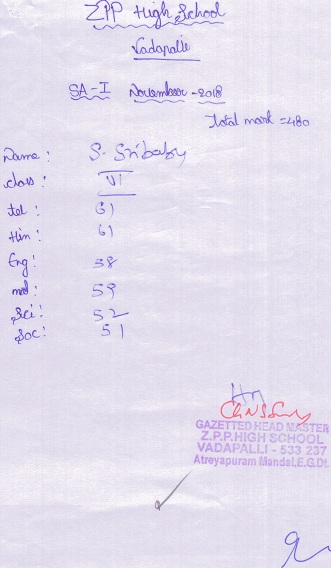 ZPP High School
Vadapalli
SA-I November-2018
Total mark =480
Name: S. Sribaby
class: VI
tel: 61
Hin: 61
Eng: 38
mat: 59
Sci: 52
Soc: 51
GAZETTED HEAD MASTER
Z.P.P.HIGH SCHOOL
VADAPALLI - 533 237
Atreyapuram Mandal,E.G.Dt.